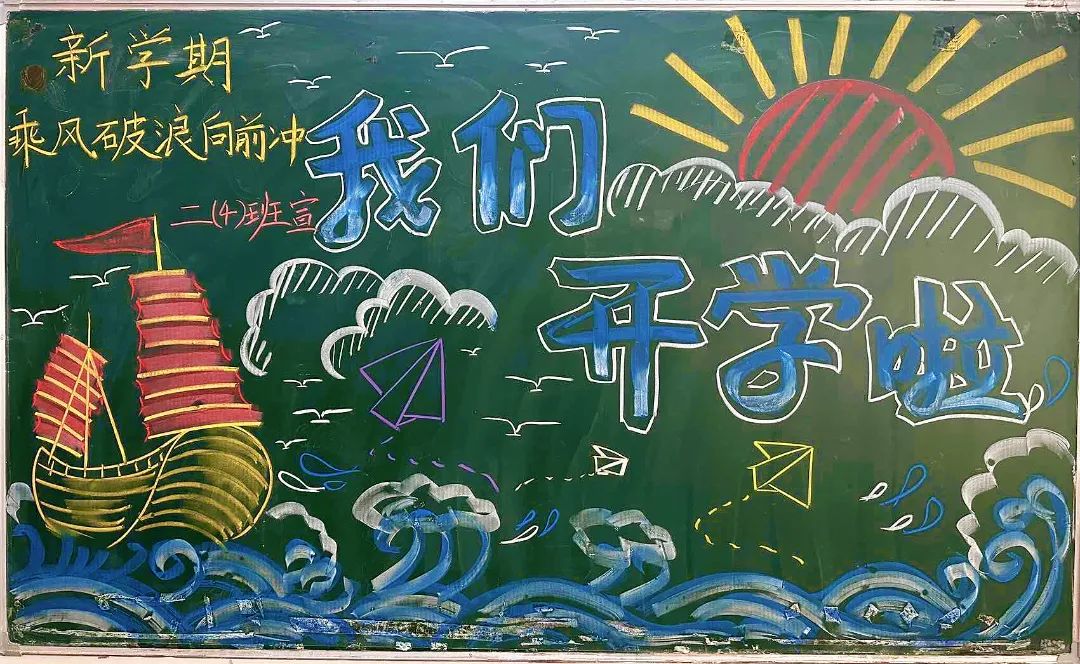 新学期
乘风破浪向前冲
二(4)班宣
我们
开学啦